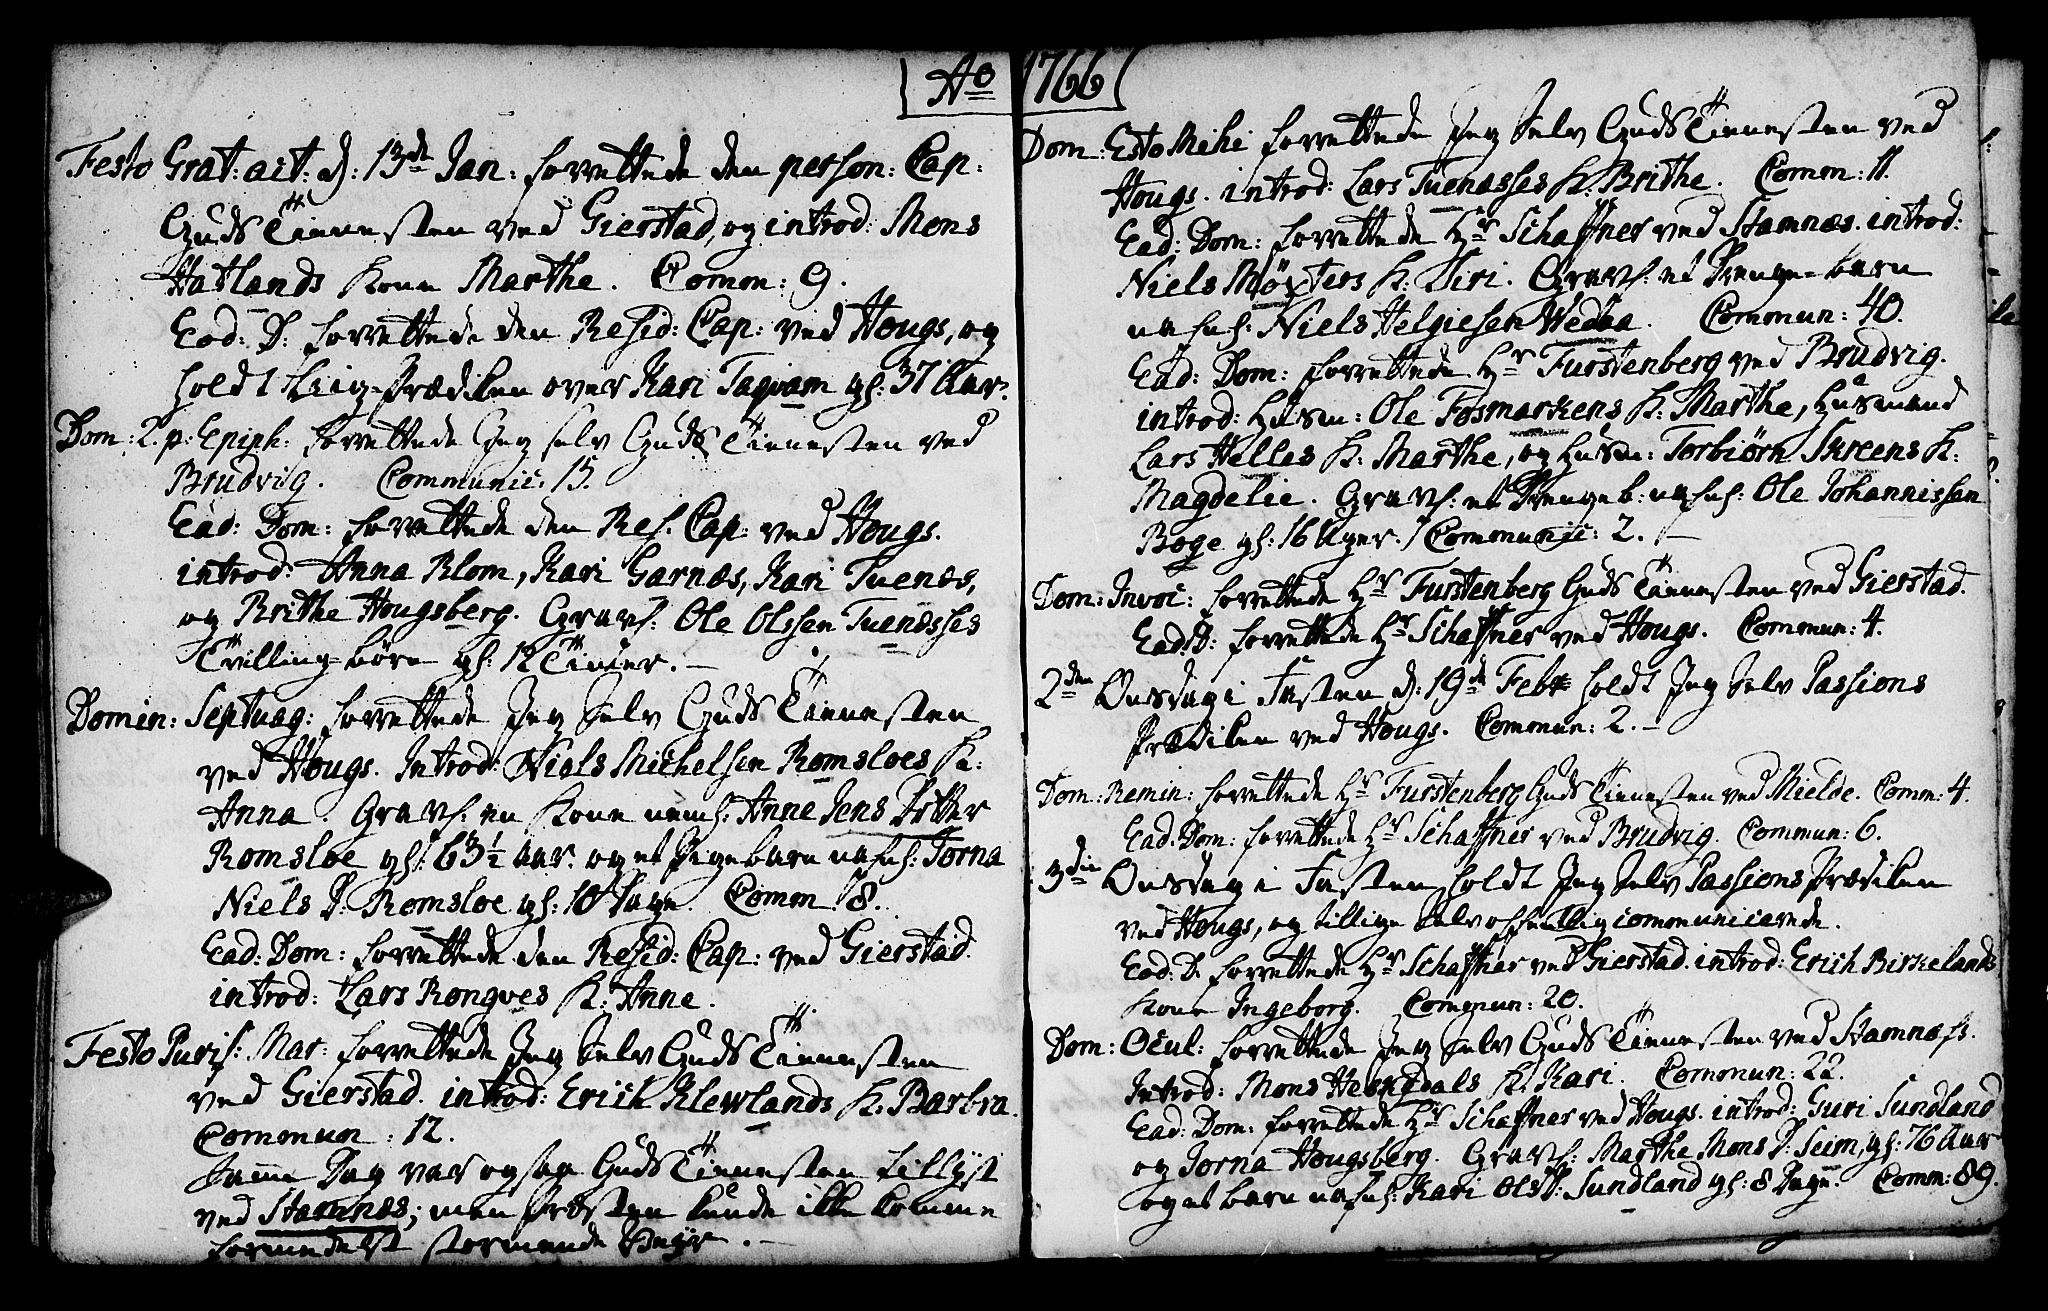 Ao 1766
Festo Grat: act: d: 13de Jan: forrettede den person: Cap:
Guds Tienesten ved Gierstad, og introd: Mons
Hatlands Kone Marthe. Comm: 9.
Eod: D: forrettede den Resid: Cap: ved Hougs, og
holdt Liig-Prædiken over Kari Taqvam gl: 37 Aar.
Dom: 2. p: Epiph: forrettede Jeg selv Guds Tienesten ved
Brudvig. Communic: 15.
Ead: Dom: forrettede den Res. Cap: ved Hougs.
introd: Anna Klom, Kari Garnæs, Kari Tuenæs,
og Brithe Hougsberg. Gravf: Ole Olssen Tuenæsses
Tvilling-børn gl: 12 Timer.
Domin: Septuag: forrettede Jeg Selv Guds Tienesten
ved Hougs. Introd: Niels Michelsen Romsloes K:
Anna. Gravf: en Kone neml: Anne Jens Dotter
Romsloe gl: 63½ aar. og et Pigebarn nafnl: Torna
Niels D: Romsloe gl: 10 Dage. Comm: 8.
Ead: Dom: forrettede den Resid: Cap: ved Gierstad.
introd: Lars Rongves K: Anne.
Festo Purif: Mar: forrettede Jeg Selv Guds Tienesten
ved Gierstad. introd: Erich Klewlands K: Barbra.
Commun: 12.
Samme Dag var ogsaa Guds Tienesten tillyst
ved Stamnæs; men Præsten kunde ikke komme
formedelst stormende Veyr.
Dom: Esto Mihi forrettede Jeg Selv Guds Tienesten ved
Hougs. introd: Lars Tuenæsses K: Brithe. Comm: 11.
Ead: Dom: forrettede Hr Schaffner ved Stamnæs. introd:
Niels Møsters K: Siri. Gravf: et Drenge-barn
nafnl: Niels Helgiesen Wedaa. Commun: 40.
Ead: Dom: forrettede Hr Furstenberg ved Brudvig.
introd: Husm: Ole Fosmarkens K: Marthe, Husmand
Lars Helles K: Marthe, og Husm: Torbiørn Skreens K:
Magdelie. Gravf: et Drengeb: nafnl: Ole Johannissen
Boge gl: 16 Uger. Communic: 2.
Dom: Invoc: forrettede Hr Furstenberg Guds Tienesten ved Gierstad.
Ead: D: forrettede Hr Schaffner ved Hougs. Commun: 4.
2den Onsdag i Fasten d: 19de Febr holdt Jeg Selv Passions
Prædiken ved Hougs. Commun: 2.
Dom: Remin: forrettede Hr Furstenberg Guds Tienesten ved Mielde. Comm: 4.
Ead: Dom: forrettede Hr Schaffner ved Brudvig. Commun: 6.
3die Onsdag i Fasten holdt Jeg Selv Passions Prædiken
ved Hougs, og tillige Selv offentlig communicerede.
Ead: D. forrettede Hr Schaffner ved Gierstad. introd: Erich Birkelands
Kone Ingeborg. Commun: 20.
Dom: Ocul: forrettede Jeg Selv Guds Tienesten ved Stamnæss.
Introd: Mons Hesgdals K: Kari. Commun: 22.
Ead: Dom: forrettede Hr Schaffner ved Hougs. introd: Guri Sundland
og Torna Hougsberg. Gravf: Marthe Mons D: Seim, gl: 76 Aar
og et barn nafnl: Kari Ols D: Sundland gl: 8 Dage. Comm: 89.